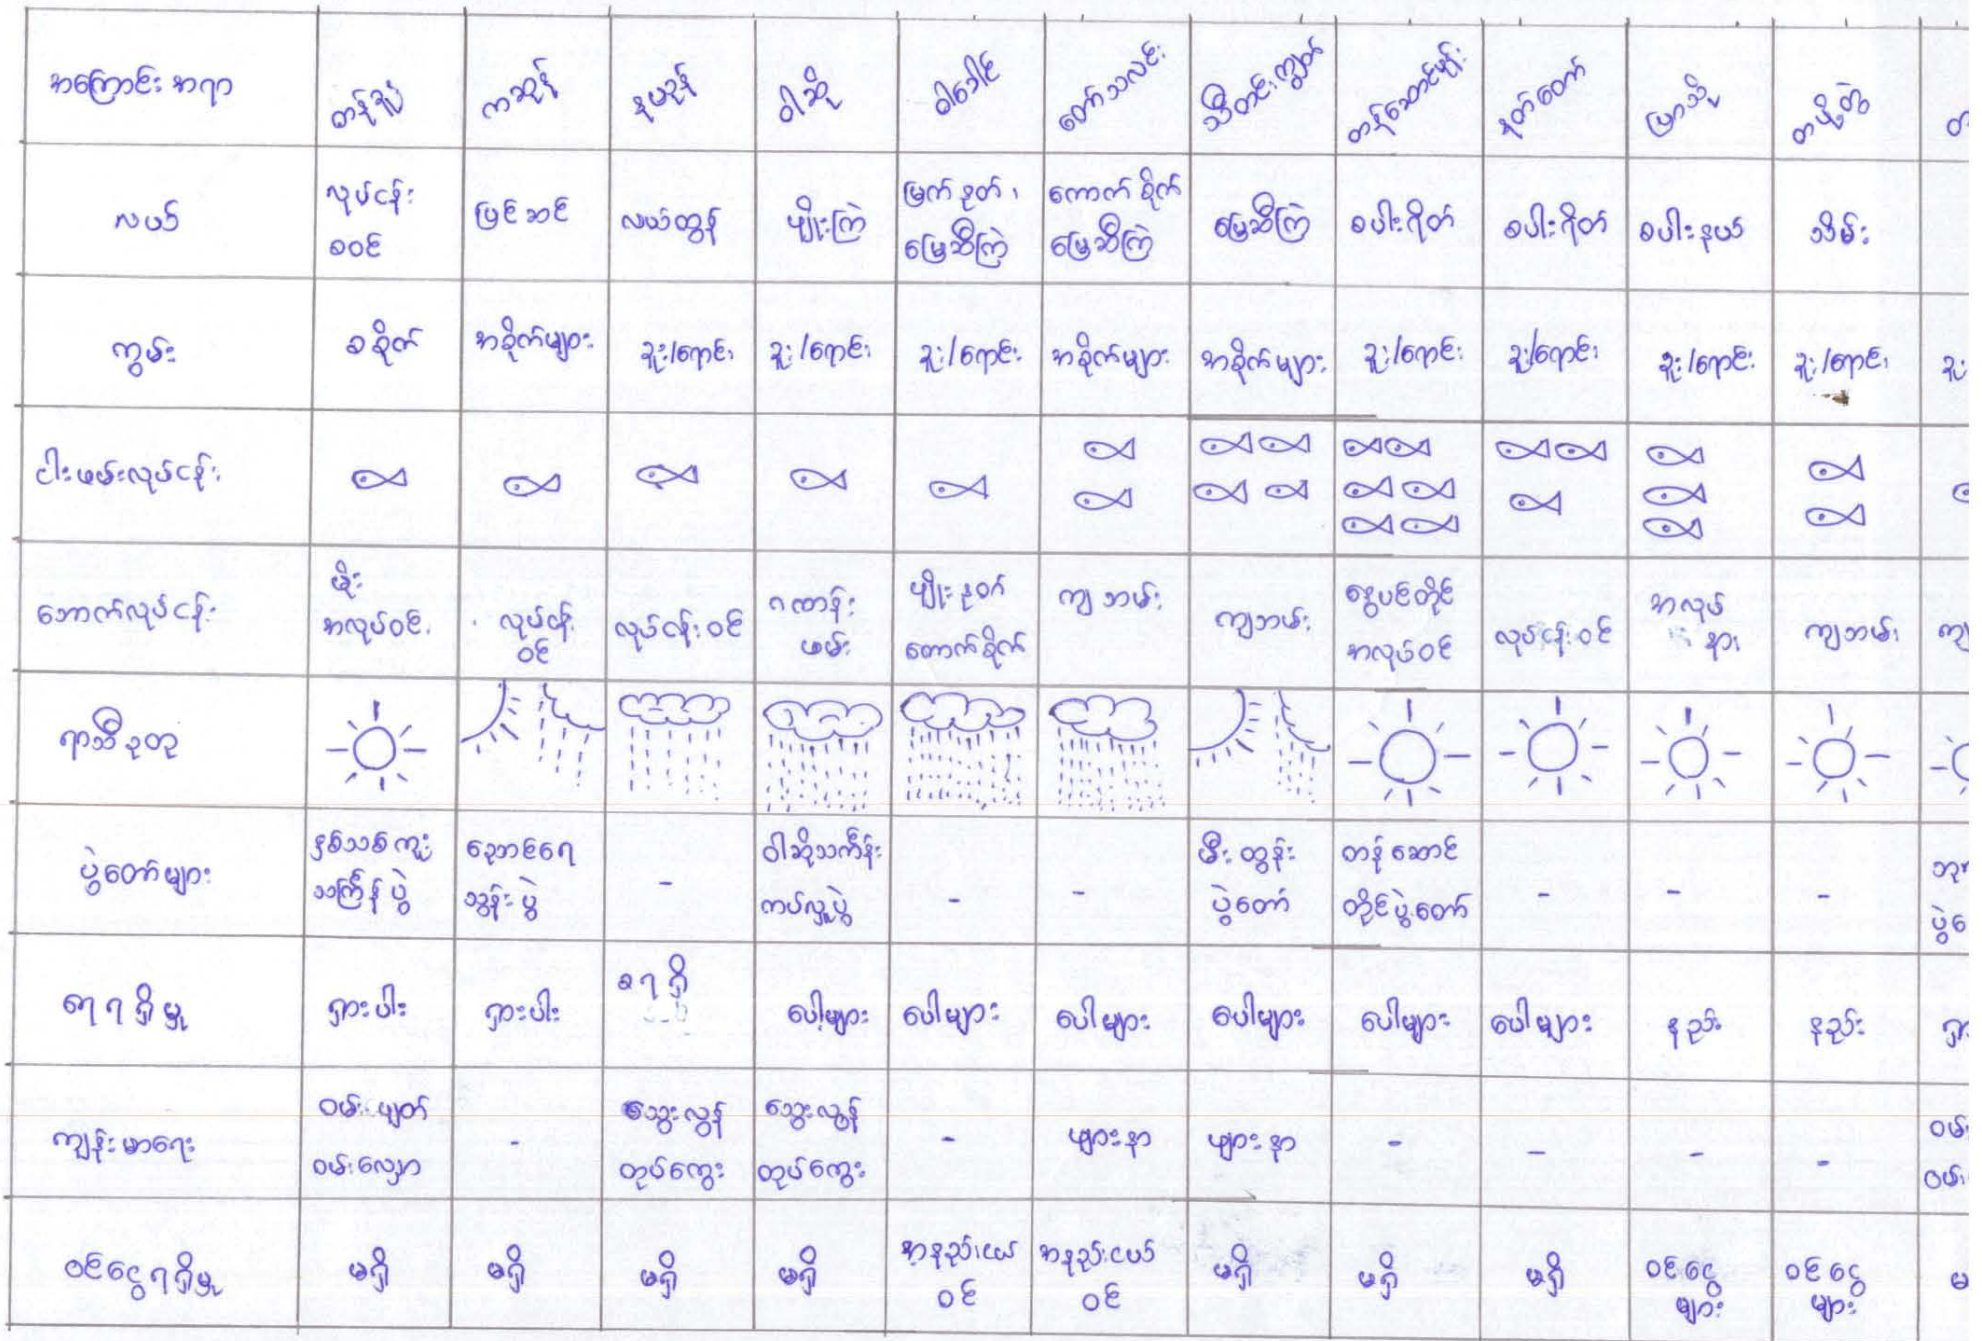 အကြောင်းအရာ တန်ခူး ကဆုန် နယုန် ဝါဆို ဝါခေါင် တော်သလင်း သီတင်းကျွတ် တန်ဆောင်မုန်း နတ်တော် ပြာသို တပို့တွဲ
လယ် လုပ်ငန်း စဝင် ပြင်ဆင် လယ်ထွန် ပျိုးကြဲ မြက်နုတ်၊ မြေဩဇာကြဲ ကောက်စိုက် မြေဩဇာကြဲ မြေဩဇာကြဲ စပါးရိတ် စပါးရိတ် စပါးနယ် သိမ်း
ကွမ်း စစိုက် အစိုက်များ ခူး/ရောင်း ခူး/ရောင်း ခူး/ရောင်း အစိုက်များ အစိုက်များ ခူး/ရောင်း ခူး/ရောင်း ခူး/ရောင်း ခူး/ရောင်း ခူး
ငါးဖမ်းလုပ်ငန်း
ဘောက်လုပ်ငန်း မိုး အလုပ်ဝင် လုပ်ငန်း ဝင် လုပ်ငန်းဝင် ဂဏန်း ဖမ်း ပျိုးနုတ် ကောက်စိုက် ကျဘမ်း ကျဘမ်း နွေပင်တိုင် အလုပ်ဝင် လုပ်ငန်းဝင် အလုပ် နား ကျဘမ်း
ရာသီဥတု
ပွဲတော်များ နှစ်သစ်ကူး သင်္ကြန်ပွဲ ညောင်ရေ သွန်းပွဲ - ဝါဆိုသင်္ကန်း ကပ်လှူပွဲ - - မီးထွန်း ပွဲတော် တန်ဆောင် တိုင်ပွဲတော် - - -
ရေရရှိမှု ရှားပါး ရှားပါး စရရှိ ပေါများ ပေါများ ပေါများ ပေါများ ပေါများ ပေါများ နည်း နည်း
ကျန်းမာရေး ဝမ်းပျက် ဝမ်းလျှော - သွေးလွန် တုပ်ကွေး သွေးလွန် တုပ်ကွေး - ဖျားနာ ဖျားနာ - - - -
ဝင်ငွေရရှိမှု မရှိ မရှိ မရှိ မရှိ အနည်းငယ် ဝင် အနည်းငယ် ဝင် မရှိ မရှိ မရှိ ဝင်ငွေ များ ဝင်ငွေ များ